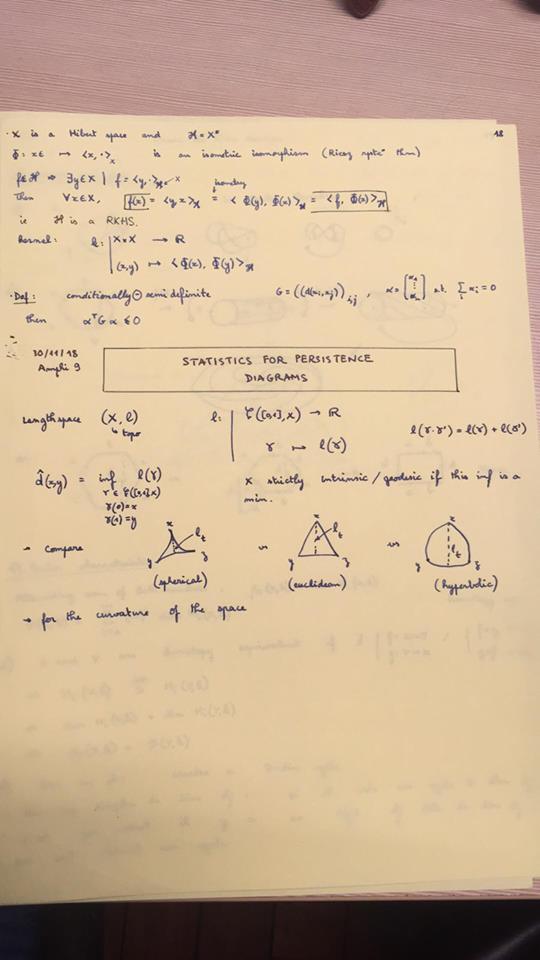 18
· X is a Hilbert space and ℋ = X*
Φ : x ∈ ↦ <x, ·>_X is an isometric isomorphism (Riesz thm)
f ∈ ℋ ⇒ ∃ y ∈ X | f = <y, ·>
isometry
Then ∀x ∈ X, f(x) = <y, x>_X = < Φ(y), Φ(x) >_ℋ = < f, Φ(x) >_ℋ
ie ℋ is a RKHS.
kernel : k : | X × X → ℝ
(x,y) ↦ < Φ(x), Φ(y) >_ℋ
· Def : conditionally ⊖ semi definite G = ((d(x_i, x_j)))_{i,j} , α = [α_1 ⋮ α_n] s.t. Σ_i α_i = 0
then α^T G α ≤ 0
30/11/18
Amphi 9
STATISTICS FOR PERSISTENCE
DIAGRAMS
Length space (X, l) l : | C([0,1], X) → ℝ
↳ topo
γ ↦ l(γ)
l(γ · γ') = l(γ) + l(γ')
d̂(x,y) = inf l(γ) X strictly intrinsic / geodesic if this inf is a
γ ∈ C([0,1], X)
γ(0) = x
γ(1) = y
min.
→ compare x y z l_t vs x y z l_t vs x y z l_t
(spherical) (euclidean) (hyperbolic)
→ for the curvature of the space